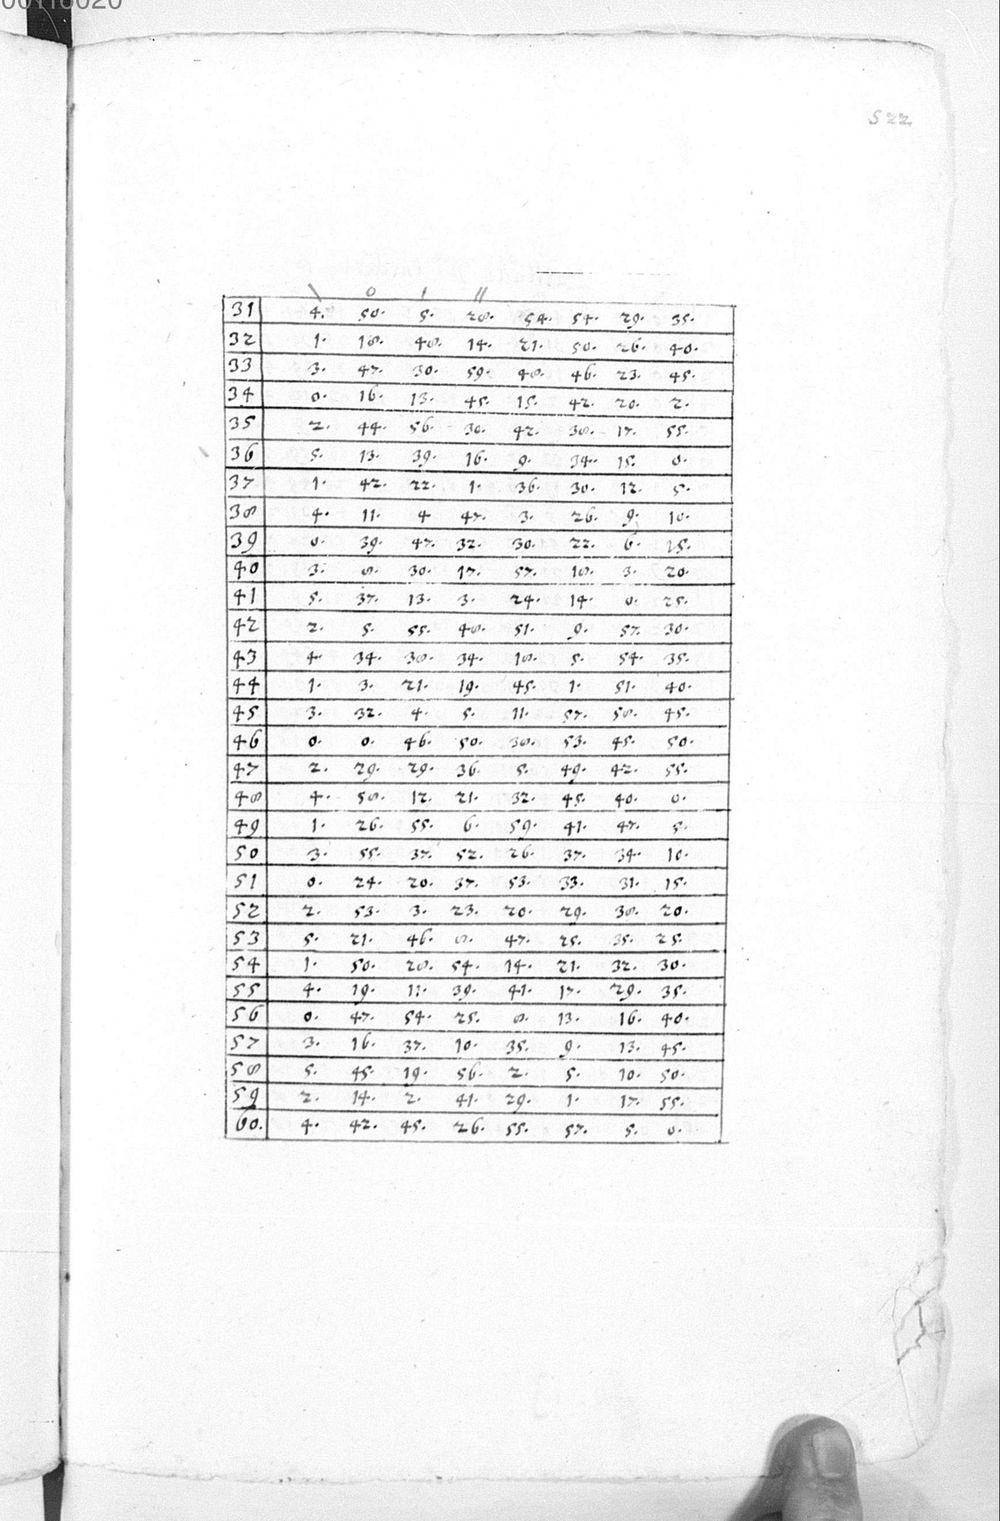 00110020
522
\ 0 ı ıı
31 4. 50. 5. 28. 54. 54. 29. 35.
32 1. 18. 48. 14. 21. 50. 26. 40.
33 3. 47. 30. 59. 48. 46. 23. 45.
34 0. 16. 13. 45. 15. 42. 20. 2.
35 2. 44. 56. 30. 42. 38. 17. 55.
36 5. 13. 39. 16. 9. 34. 15. 0.
37 1. 42. 22. 1. 36. 30. 12. 5.
38 4. 11. 4 47. 3. 26. 9. 10.
39 0. 39. 47. 32. 30. 22. 6. 15.
40 3. 8. 30. 17. 57. 18. 3. 20.
41 5. 37. 13. 3. 24. 14. 0. 25.
42 2. 5. 55. 48. 51. 9. 57. 30.
43 4. 34. 38. 34. 18. 5. 54. 35.
44 1. 3. 21. 19. 45. 1. 51. 40.
45 3. 32. 4. 5. 11. 57. 58. 45.
46 0. 0. 46. 50. 38. 53. 45. 50.
47 2. 29. 29. 36. 5. 49. 42. 55.
48 4. 58. 12. 21. 32. 45. 40. 0.
49 1. 26. 55. 6. 59. 41. 47. 5.
50 3. 55. 37. 52. 26. 37. 34. 10.
51 0. 24. 20. 37. 53. 33. 31. 15.
52 2. 53. 3. 23. 20. 29. 38. 20.
53 5. 21. 46. 8. 47. 25. 35. 25.
54 1. 50. 28. 54. 14. 21. 32. 30.
55 4. 19. 11. 39. 41. 17. 29. 35.
56 0. 47. 54. 25. 8. 13. 16. 40.
57 3. 16. 37. 10. 35. 9. 13. 45.
58 5. 45. 19. 56. 2. 5. 10. 50.
59 2. 14. 2. 41. 29. 1. 17. 55.
60. 4. 42. 45. 26. 55. 57. 5. 0.